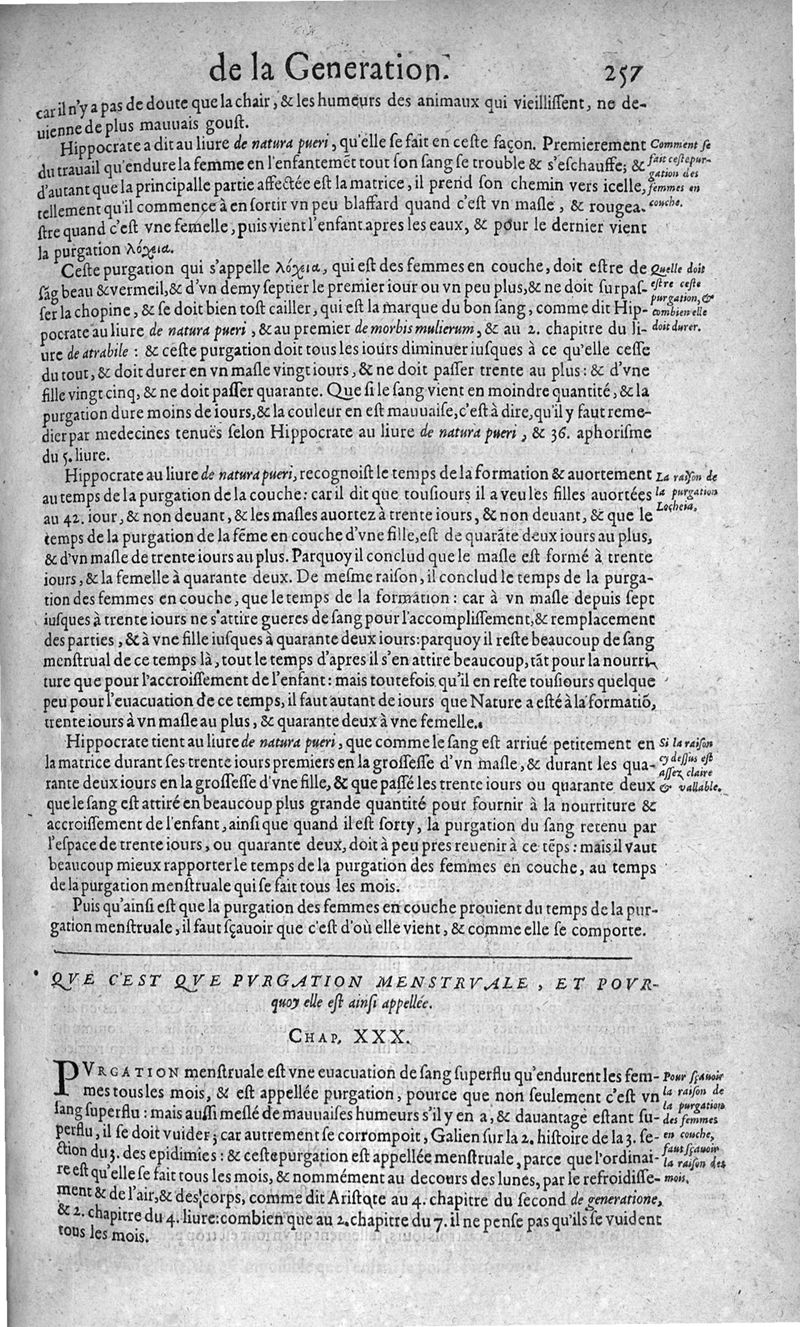 de la Generation. 257
car il n'y a pas de doute que la chair, & les humeurs des animaux qui vieilliſſent, ne de-
uienne de plus mauuais gouſt.
Hippocrate a dit au liure de natura pueri, qu'elle ſe fait en ceſte façon. Premierement
du trauail qu'endure la femme en l'enfantemēt tout ſon ſang ſe trouble & s'eſchauffe; &
d'autant que la principalle partie affectée eſt la matrice, il prend ſon chemin vers icelle,
tellement qu'il commence à en ſortir vn peu blaffard quand c'eſt vn maſle, & rougea-
ſtre quand c'eſt vne femelle, puis vient l'enfant apres les eaux, & pour le dernier vient
la purgation λόχεια.
Comment ſe
fait ceſte pur-
gation des
femmes en
couche.
Ceſte purgation qui s'appelle λόχεια, qui eſt des femmes en couche, doit eſtre de
ſāg beau & vermeil, & d'vn demy ſeptier le premier iour ou vn peu plus, & ne doit ſurpaſ-
ſer la chopine, & ſe doit bien toſt cailler, qui eſt la marque du bon ſang, comme dit Hip-
pocrate au liure de natura pueri, & au premier de morbis mulierum, & au 2. chapitre du li-
ure de atrabile : & ceſte purgation doit tous les iours diminuer iuſques à ce qu'elle ceſſe
du tout, & doit durer en vn maſle vingt iours, & ne doit paſſer trente au plus : & d'vne
fille vingt cinq, & ne doit paſſer quarante. Que ſi le ſang vient en moindre quantité, & la
purgation dure moins de iours, & la couleur en eſt mauuaiſe, c'eſt à dire, qu'il y faut reme-
dier par medecines tenuës ſelon Hippocrate au liure de natura pueri, & 36. aphoriſme
du 5. liure.
Quelle doit
eſtre ceſte
purgation, &
combien elle
doit durer.
Hippocrate au liure de natura pueri, recognoiſt le temps de la formation & auortement
au temps de la purgation de la couche : car il dit que touſiours il a veu les filles auortées
au 42. iour, & non deuant, & les maſles auortez à trente iours, & non deuant, & que le
temps de la purgation de la fēme en couche d'vne fille, eſt de quarāte deux iours au plus,
& d'vn maſle de trente iours au plus. Parquoy il conclud que le maſle eſt formé à trente
iours, & la femelle à quarante deux. De meſme raiſon, il conclud le temps de la purga-
tion des femmes en couche, que le temps de la formation : car à vn maſle depuis ſept
iuſques à trente iours ne s'attire gueres de ſang pour l'accompliſſement, & remplacement
des parties, & à vne fille iuſques à quarante deux iours : parquoy il reſte beaucoup de ſang
menſtrual de ce temps là, tout le temps d'apres il s'en attire beaucoup, tāt pour la nourri-
ture que pour l'accroiſſement de l'enfant : mais toutefois qu'il en reſte touſiours quelque
peu pour l'euacuation de ce temps, il faut autant de iours que Nature a eſté à la formatiō,
trente iours à vn maſle au plus, & quarante deux à vne femelle.
La raiſon de
la purgation
Locheia.
Hippocrate tient au liure de natura pueri, que comme le ſang eſt arriué petitement en
la matrice durant ſes trente iours premiers en la groſſeſſe d'vn maſle, & durant les qua-
rante deux iours en la groſſeſſe d'vne fille, & que paſſé les trente iours ou quarante deux
que le ſang eſt attiré en beaucoup plus grande quantité pour fournir à la nourriture &
accroiſſement de l'enfant, ainſi que quand il eſt ſorty, la purgation du ſang retenu par
l'eſpace de trente iours, ou quarante deux, doit à peu pres reuenir à ce tēps : mais il vaut
beaucoup mieux rapporter le temps de la purgation des femmes en couche, au temps
de la purgation menſtruale qui ſe fait tous les mois.
Si la raiſon
cy deſſus eſt
aſſez claire
& vallable.
Puis qu'ainſi eſt que la purgation des femmes en couche prouient du temps de la pur-
gation menſtruale, il faut ſçauoir que c'eſt d'où elle vient, & comme elle ſe comporte.
QVE C'EST QVE PVRGATION MENSTRVALE, ET POVR-
quoy elle eſt ainſi appellée.
CHAP. XXX.
PVRGATION menſtruale eſt vne euacuation de ſang ſuperflu qu'endurent les fem-
mes tous les mois, & eſt appellée purgation, pource que non ſeulement c'eſt vn
ſang ſuperflu : mais auſſi meſlé de mauuaiſes humeurs s'il y en a, & dauantage eſtant ſu-
perflu, il ſe doit vuider ; car autrement ſe corrompoit, Galien ſur la 2. hiſtoire de la 3. ſe-
ction du 3. des epidimies : & ceſte purgation eſt appellée menſtruale, parce que l'ordinai-
re eſt qu'elle ſe fait tous les mois, & nommément au decours des lunes, par le refroidiſſe-
ment & de l'air, & des corps, comme dit Ariſtote au 4. chapitre du ſecond de generatione,
& 2. chapitre du 4. liure : combien que au 2. chapitre du 7. il ne penſe pas qu'ils ſe vuident
tous les mois.
Pour ſçauoir
la raiſon de
la purgation
des femmes
en couche,
faut ſçauoir
la raiſon des
mois.